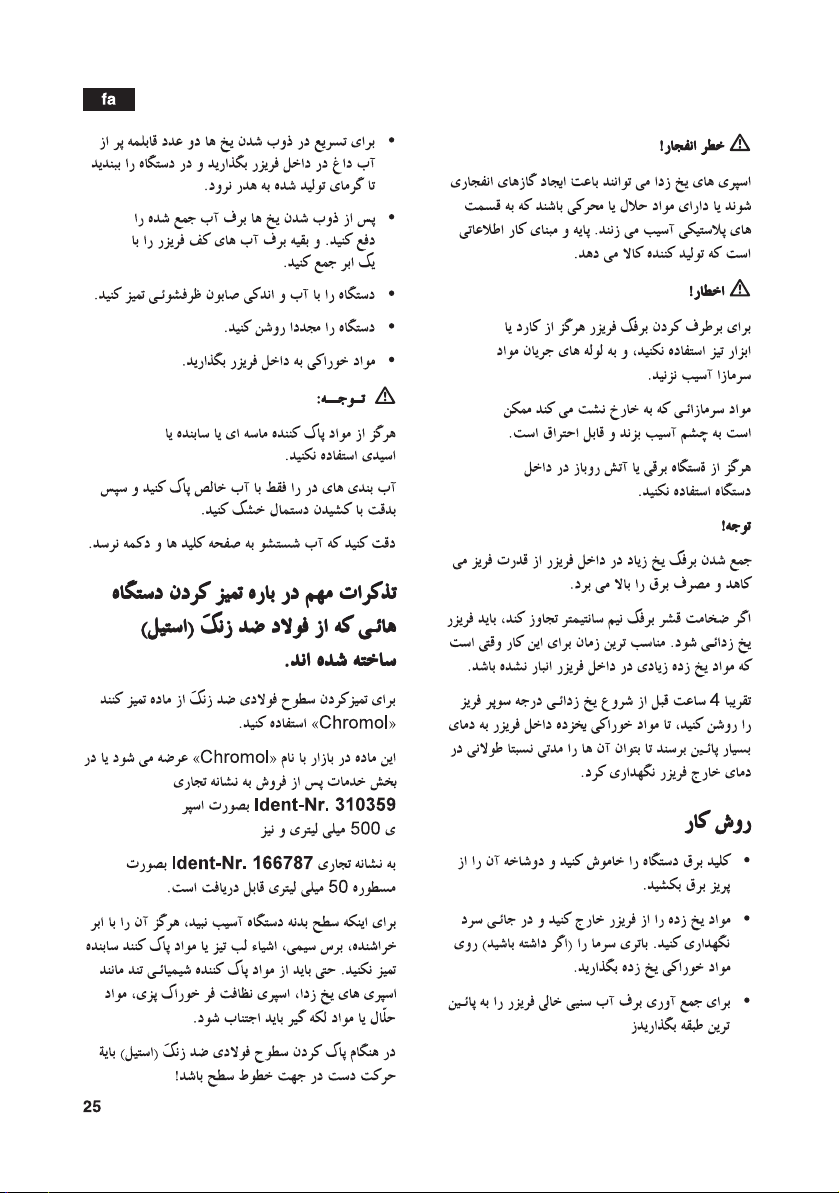 fa
خطر انفجار!
اسپری های یخ زدا می توانند باعت ایجاد گازهای انفجاری
شوند یا دارای مواد حلال یا محرکی باشند که به قسمت
های پلاستیکی آسیب می زنند. پایه و مبنای کار اطلاعاتی
است که تولید کننده کالا می دهد.
اخطار!
برای برطرف کردن برفک فریزر هرگز از کارد یا
ابزار تیز استفاده نکنید، و به لوله های جریان مواد
سرمازا آسیب نزنید.
مواد سرمازائی که به خارخ نشت می کند ممکن
است به چشم آسیب بزند و قابل احتراق است.
هرگز از ةستگاه برقی یا آتش روباز در داخل
دستگاه استفاده نکنید.
توجه!
جمع شدن برفک یخ زیاد در داخل فریزر از قدرت فریز می
کاهد و مصرف برق را بالا می برد.
اگر ضخامت قشر برفک نیم سانتیمتر تجاوز کند، باید فریزر
یخ زدائی شود. مناسب ترین زمان برای این کار وقتی است
که مواد یخ زده زیادی در داخل فریزر انبار نشده باشد.
تقریبا 4 ساعت قبل از شروع یخ زدائی درجه سوپر فریز
را روشن کنید، تا مواد خوراکی یخزده داخل فریزر به دمای
بسیار پائین برسند تا بتوان آن ها را مدتی نسبتا طولانی در
دمای خارج فریزر نگهداری کرد.
روش کار
• کلید برق دستگاه را خاموش کنید و دوشاخه آن را از
پریز برق بکشید.
• مواد یخ زده را از فریزر خارج کنید و در جائی سرد
نگهداری کنید. باتری سرما را (اگر داشته باشید) روی
مواد خوراکی یخ زده بگذارید.
• برای جمع آوری برف آب سنیی خالی فریزر را به پائین
ترین طبقه بگذاریدز
• برای تسریع در ذوب شدن یخ ها دو عدد قابلمه پر از
آب داغ در داخل فریزر بگذارید و در دستگاه را ببندید
تا گرمای تولید شده به هدر نرود.
• پس از ذوب شدن یخ ها برف آب جمع شده را
دفع کنید. و بقیه برف آب های کف فریزر را با
یک ابر جمع کنید.
• دستگاه را با آب و اندکی صابون ظرفشوئی تمیز کنید.
• دستگاه را مجددا روشن کنید.
• مواد خوراکی به داخل فریزر بگذارید.
تـوجـــه:
هرگز از مواد پاک کننده ماسه ای یا سابنده یا
اسیدی استفاده نکنید.
آب بندی های در را فقط با آب خالص پاک کنید و سپس
بدقت با کشیدن دستمال خشک کنید.
دقت کنید که آب شستشو به صفحه کلید ها و دکمه نرسد.
تذکرات مهم در باره تمیز کردن دستگاه
هائی که از فولاد ضد زنگ (استیل)
ساخته شده اند.
برای تمیزکردن سطوح فولادی ضد زنگ از ماده تمیز کنند
«Chromol» استفاده کنید.
این ماده در بازار با نام «Chromol» عرضه می شود یا در
بخش خدمات پس از فروش به نشانه تجاری
Ident-Nr. 310359 بصورت اسپر
ی 500 میلی لیتری و نیز
به نشانه تجاری Ident-Nr. 166787 بصورت
مسطوره 50 میلی لیتری قابل دریافت است.
برای اینکه سطح بدنه دستگاه آسیب نبید، هرگز آن را با ابر
خراشنده، برس سیمی، اشیاء لب تیز یا مواد پاک کنند سابنده
تمیز نکنید. حتی باید از مواد پاک کننده شیمیائی تند مانند
اسپری های یخ زدا، اسپری نظافت فر خوراک پزی، مواد
حلّال یا مواد لکه گیر باید اجتناب شود.
در هنگام پاک کردن سطوح فولادی ضد زنگ (استیل) بایة
حرکت دست در جهت خطوط سطح باشد!
25